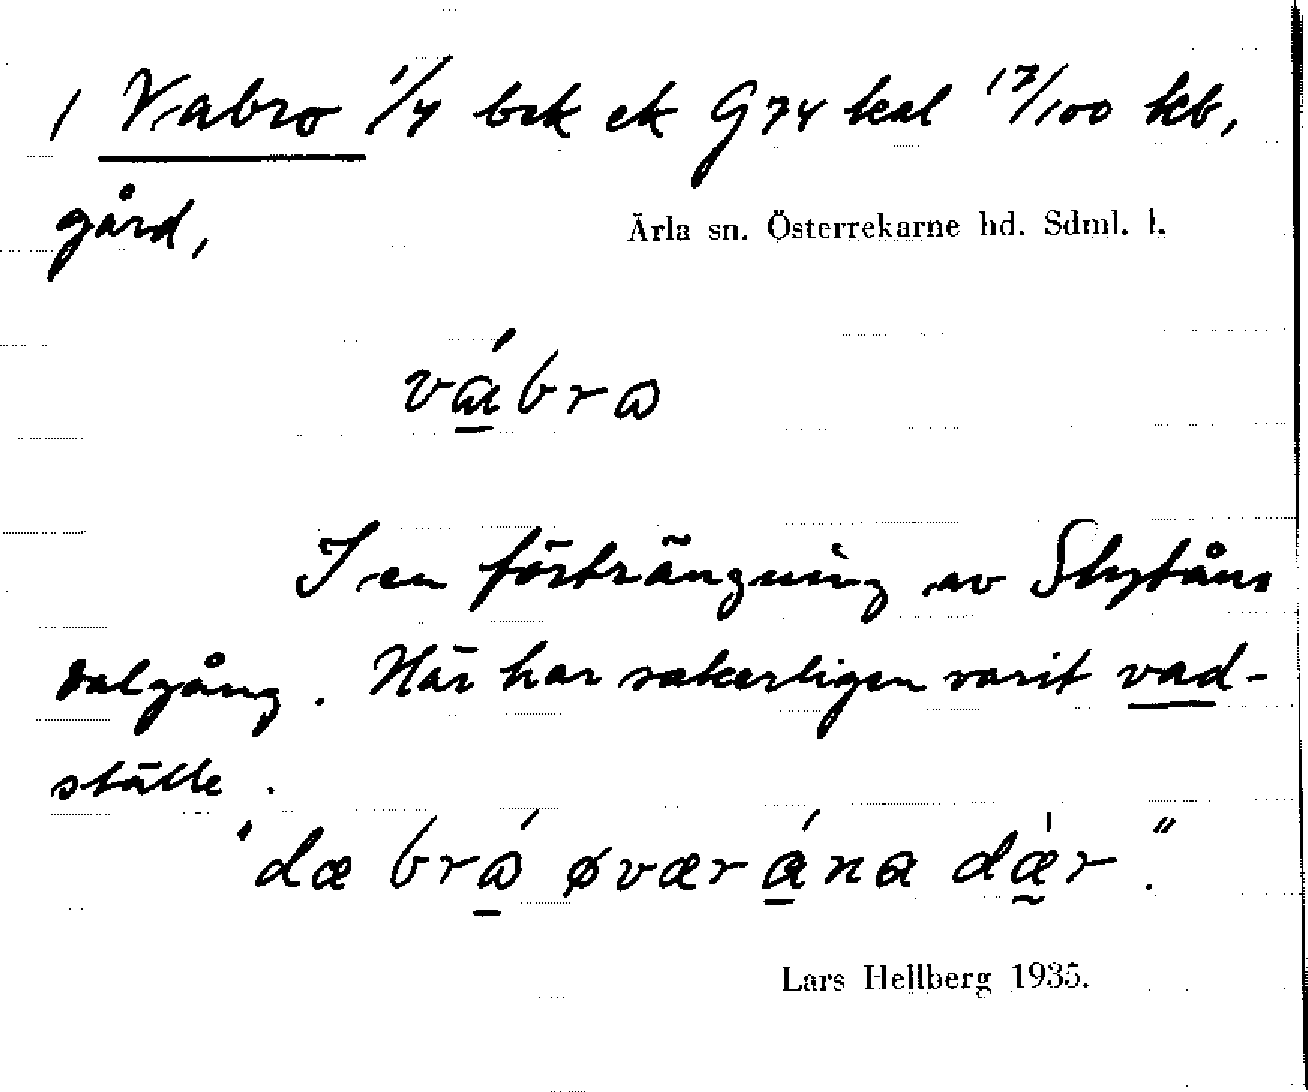 1 Vabro 1/4 brk ek G74 kal 17/100 kb,
gård,
Ärla sn. Österrekarne hd. Sdml. l.
vábrω
I en förträngning av Skytåns
dalgång. Här har säkerligen varit vad-
ställe.
"dæ brώ øvær ána dǽr."
Lars Hellberg 1935.